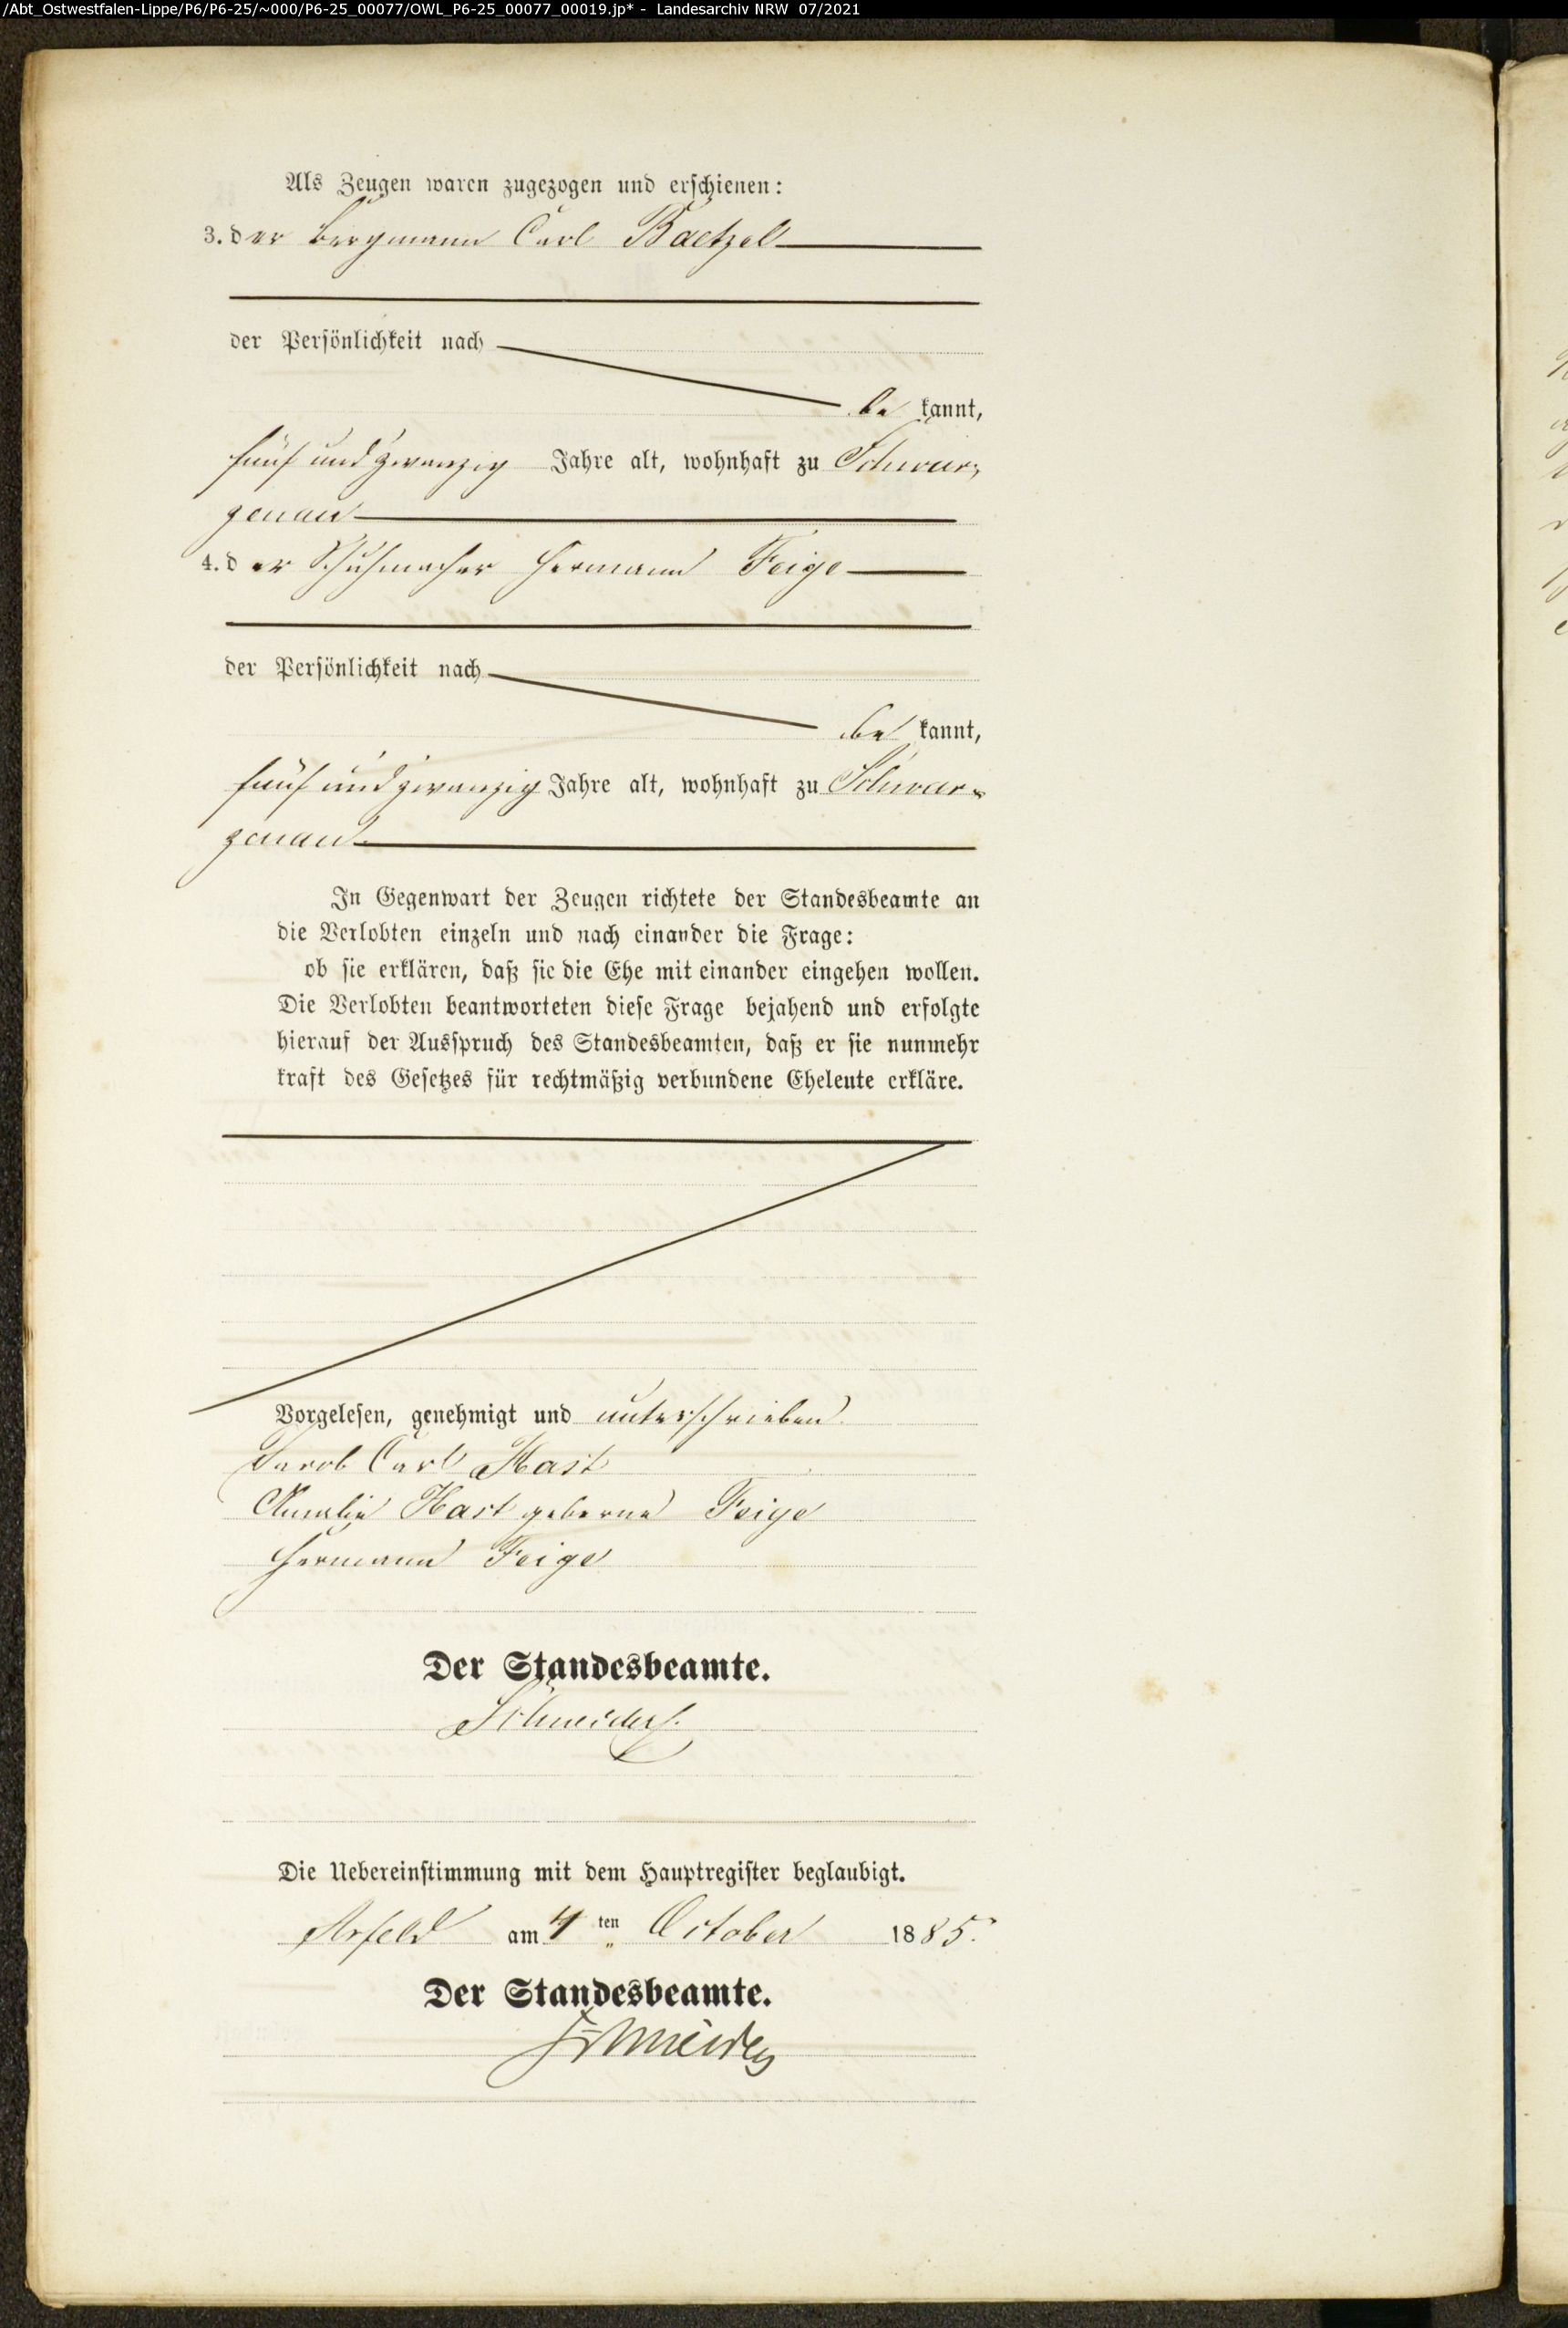 /Abt_Ostwestfalen-Lippe/P6/P6-25/~000/P6-25_00077/OWL_P6-25_00077_00019.jp* - Landesarchiv NRW 07/2021
Als Zeugen waren zugezogen und erschienen:
3. der Bergmann Carl Baetzel
der Persönlichkeit nach
be kannt,
fünf und zwanzig Jahre alt, wohnhaft zu Schwar-
zenau
4. der Schuhmacher Hermann Feige
der Persönlichkeit nach
be kannt,
fünf und zwanzig Jahre alt, wohnhaft zu Schwar-
zenau
In Gegenwart der Zeugen richtete der Standesbeamte an
die Verlobten einzeln und nach einander die Frage:
ob sie erklären, daß sie die Ehe mit einander eingehen wollen.
Die Verlobten beantworteten diese Frage bejahend und erfolgte
hierauf der Ausspruch des Standesbeamten, daß er sie nunmehr
kraft des Gesetzes für rechtmäßig verbundene Eheleute erkläre.
Vorgelesen, genehmigt und unterschrieben
Jacob Carl Hast
Amalie Hast geborne Feige
Hermann Feige
Der Standesbeamte.
Schneider.
Die Uebereinstimmung mit dem Hauptregister beglaubigt.
Arfeld am 4 ten October 1885.
Der Standesbeamte.
Schneider